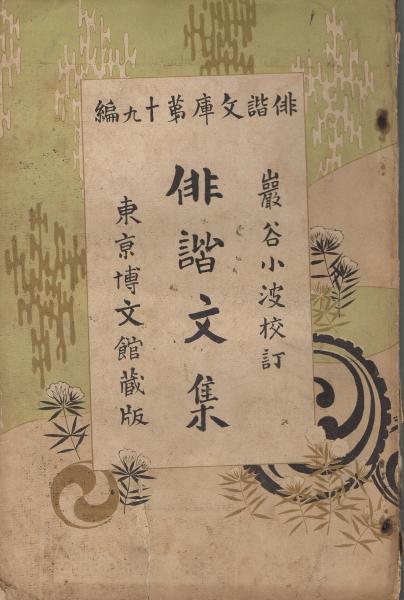 俳諧文庫第十九編
巖谷小波校訂
俳諧文集
東京博文館蔵版